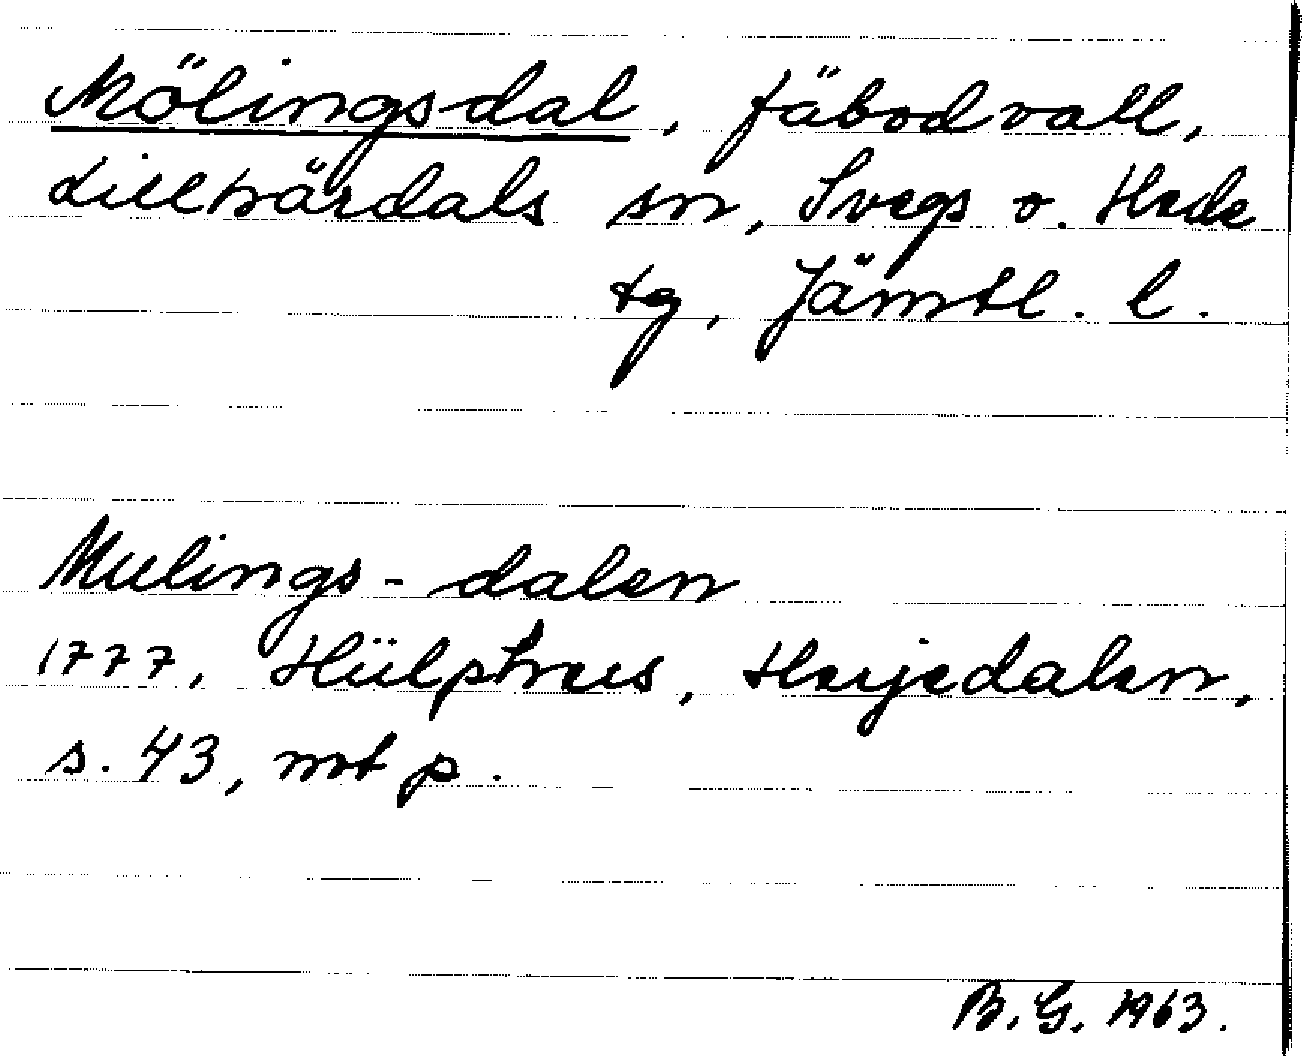 Mölingsdal, fäbodvall,
Lillhärdals sn, Svegs o. Hede
tg, Jämtl. l.
Mulings-dalen
1777, Hülphers, Herjedalen,
s. 43, mt p.
B. G. 1963.